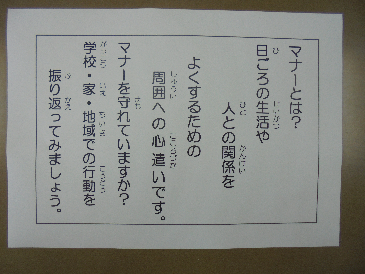 マナーとは?
日ごろの生活や
人との関係を
よくするための
周囲への心遣いです。
マナーを守れていますか?
学校・家・地域での行動を
振り返ってみましょう。